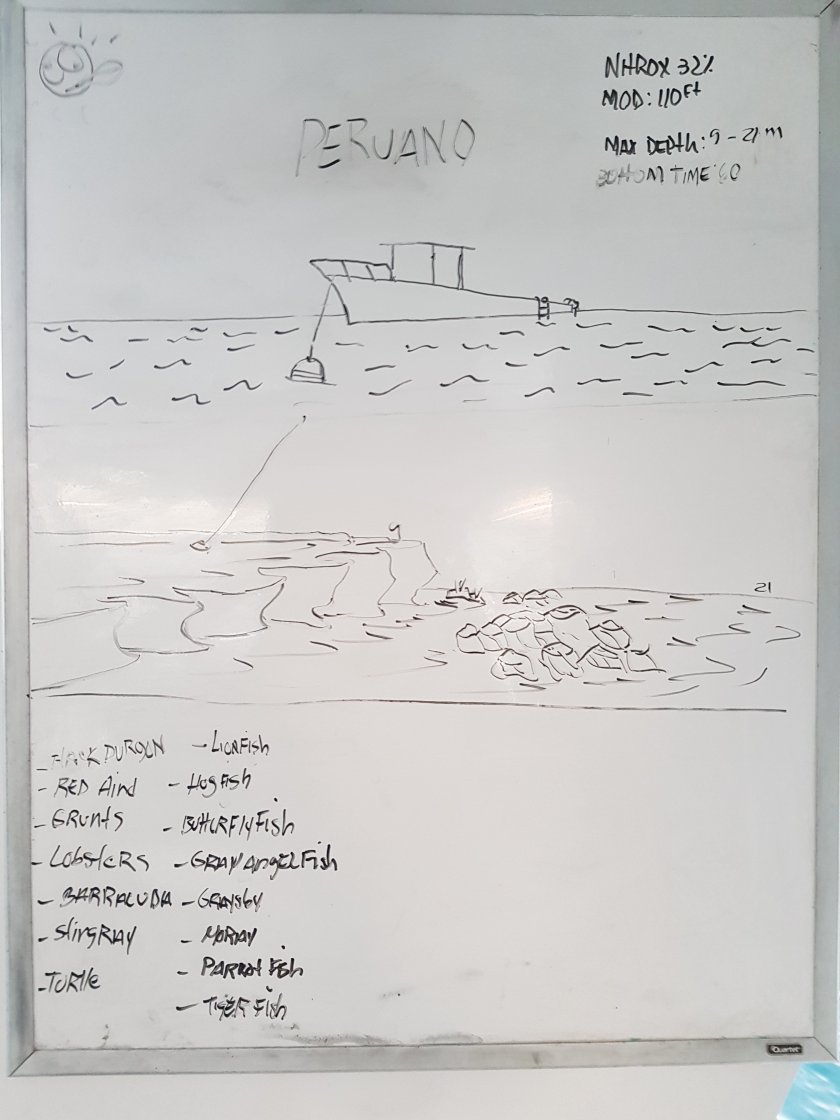 NITROX 32%
MOD: 110Ft
PERUANO
MAX DEPTH: 9 - 21 m
BOTTOM TIME 60
9
21
DURGON
- LIONFISH
- RED Hind
- HOGFISH
- GRUNTS
- BUTTERFLYFISH
- LOBSTERS
- GRAY ANGELFISH
- BARRACUDA
- GRAYSBY
- STINGRAY
- MORAY
- TURTLE
- PARROT FISH
- TIGER FISH
Quartet